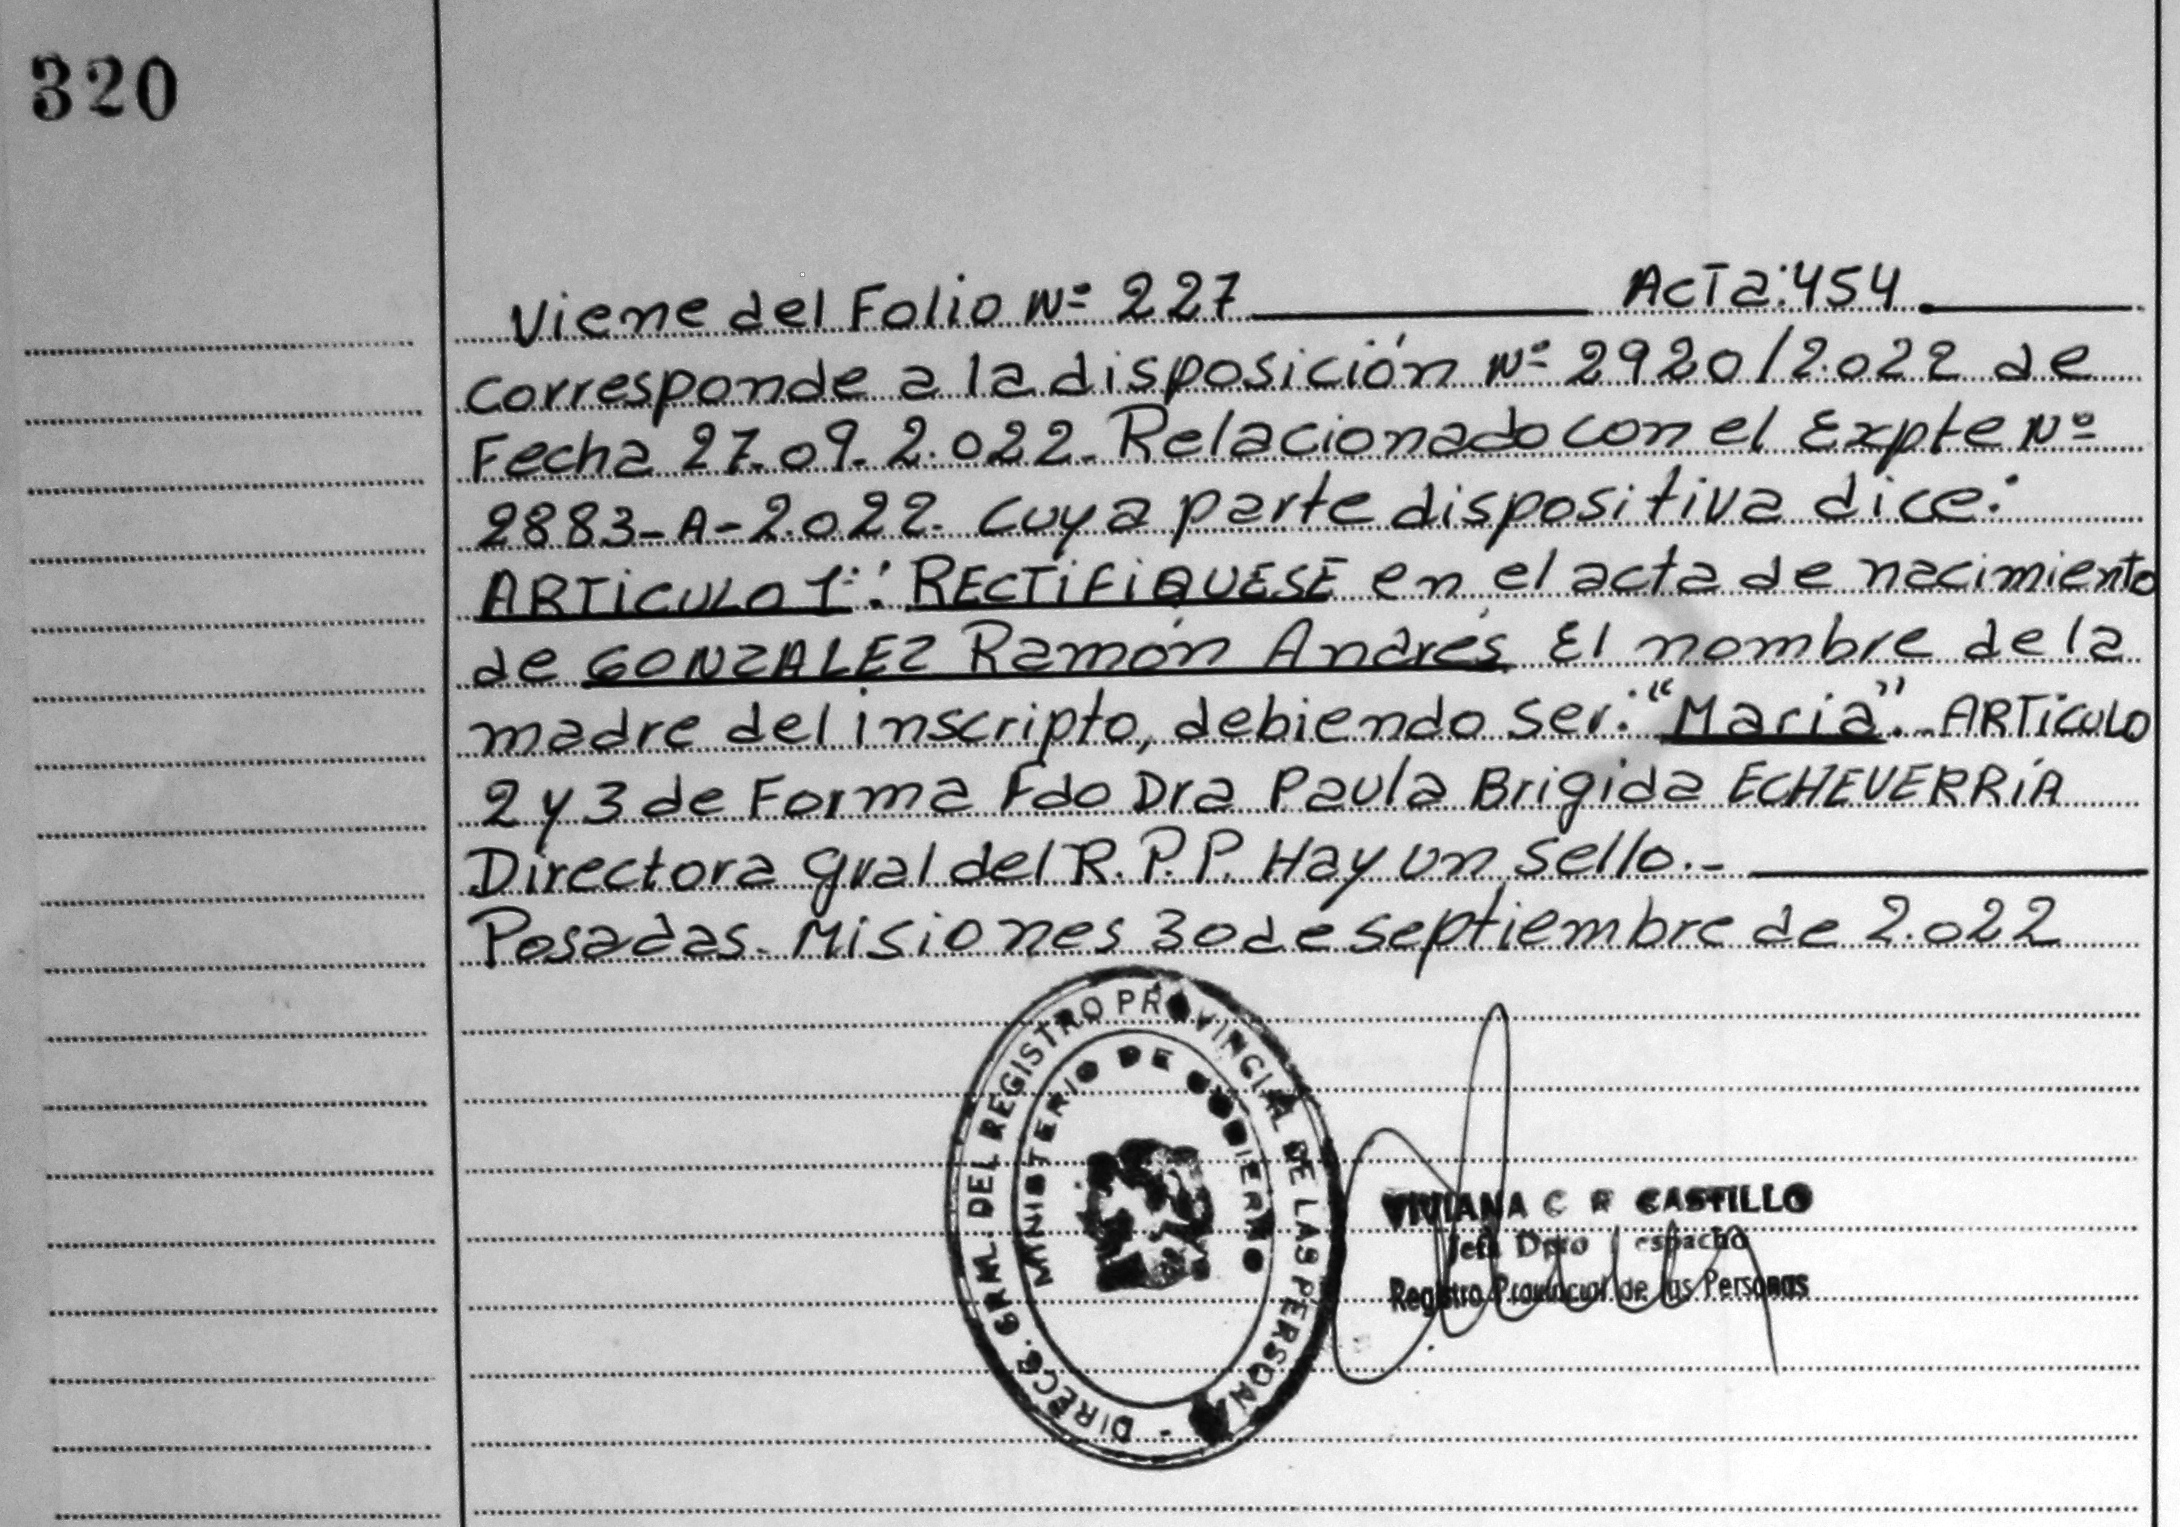 320
Viene del Folio Nº 227 Acta: 454.
Corresponde a la disposición Nº 2920/2.022 de
Fecha 27.09.2.022. Relacionado con el Expte Nº
2883-A-2.022. Cuya parte dispositiva dice:
ARTiCULO 1º: RECTiFiQUESE en el acta de nacimiento
de GONZALEZ Ramón Andrés. El nombre de la
madre del inscripto, debiendo ser: "Maria".- ARTiCULO
2 y 3 de Forma Fdo Dra Paula Brigida ECHEVERRÍA
Directora gral del R.P.P. Hay un sello.-
Posadas. Misiones 30 de septiembre de 2.022
- DIRECC. GRAL. DEL REGISTRO PROVINCIAL DE LAS PERSONAS
MINISTERIO DE GOBIERNO
VIVIANA C R CASTILLO
Jefa Dpto espacho
Registro Provincial de las Personas